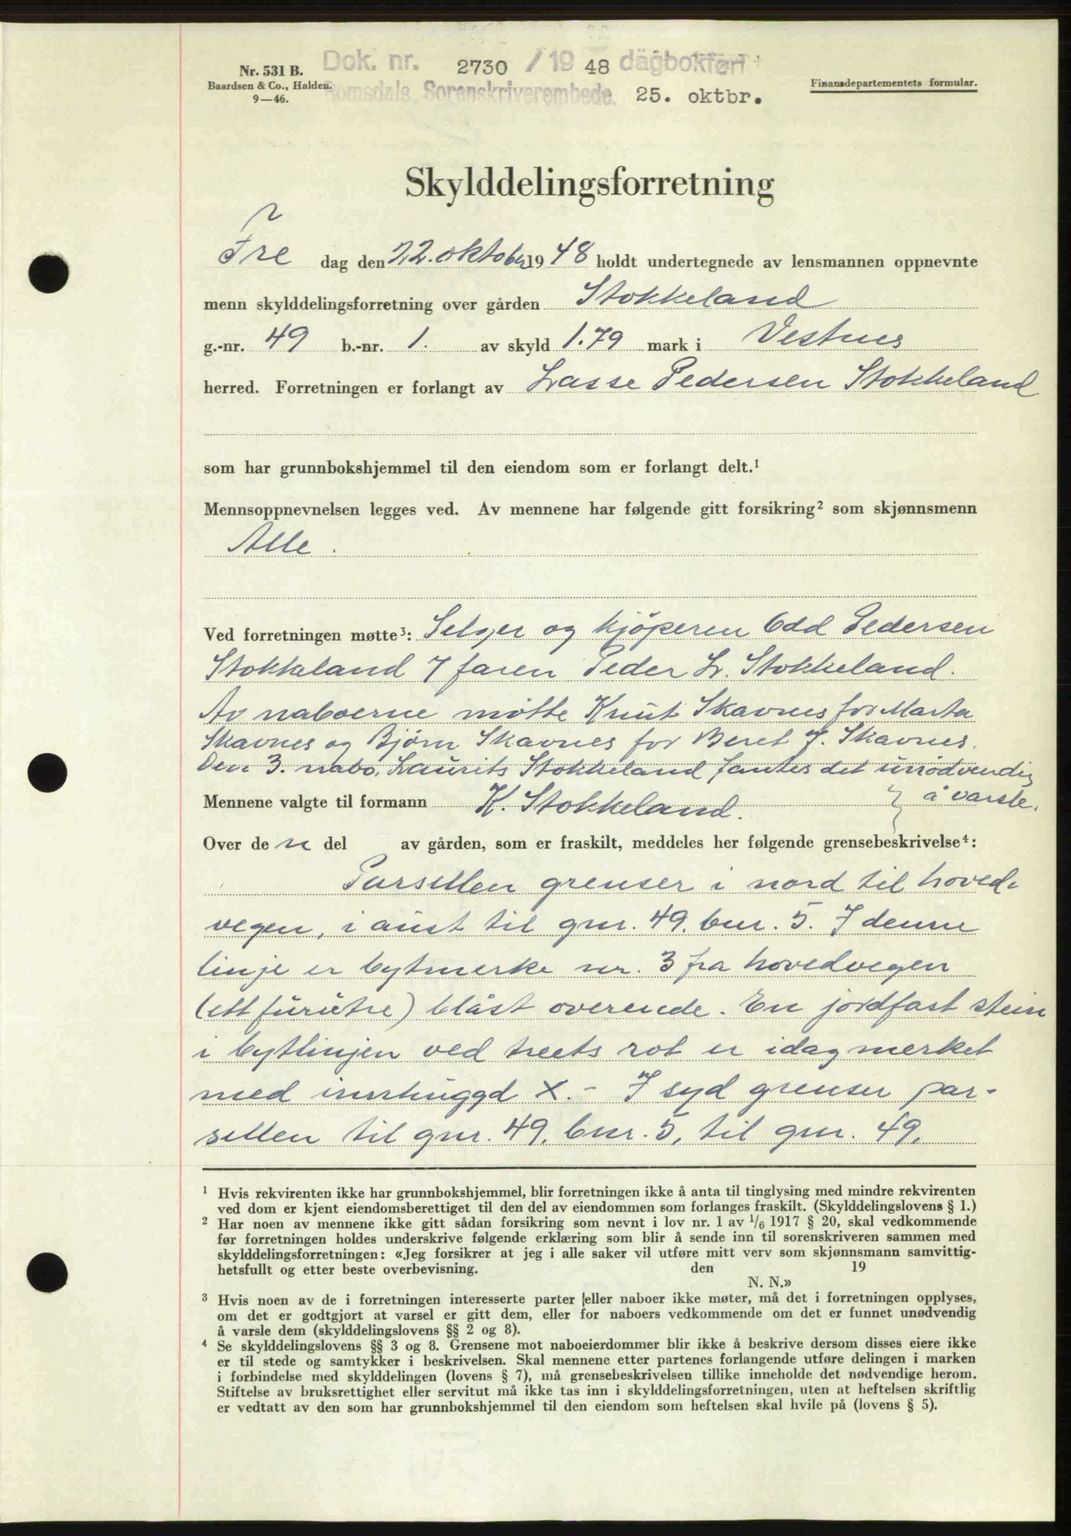 Nr. 531 B.
Baardsen & Co., Halden.
9—46.
Dok. nr. 2730 / 19 48 dagbokført
Romsdals Sorenskriverembede. 25. oktbr.
Finansdepartementets formular.
Skylddelingsforretning
Fre dag den 22. oktober 19 48 holdt undertegnede av lensmannen oppnevnte
menn skylddelingsforretning over gården Stokkeland
g.-nr. 49 b.-nr. 1. av skyld 1.79 mark i Vestnes
herred. Forretningen er forlangt av Lasse Pedersen Stokkeland
som har grunnbokshjemmel til den eiendom som er forlangt delt.¹
Mennsoppnevnelsen legges ved. Av mennene har følgende gitt forsikring² som skjønnsmenn
Alle.
Ved forretningen møtte³: Selger og kjöperen Odd Pedersen
Stokkeland / faren Peder L. Stokkeland.
Av naboerne møtte Knut Skavnes for Marta
Skavnes og Bjørn Skavnes for Beret J. Skavnes.
Den 3. nabo, Laurits Stokkeland fantes det unödvendig
å varsle.
Mennene valgte til formann K. Stokkeland.
Over de n del av gården, som er fraskilt, meddeles her følgende grensebeskrivelse⁴:
Parsellen grenser i nord til hoved-
vegen, i aust til gnr. 49, bnr. 5. I denne
linje er bytmerke nr. 3 fra hovedvegen
(ett furutre) blåst overende. En jordfast stein
i bytlinjen ved treets rot er idag merket
med innhuggd X. - I syd grenser par-
sellen til gnr. 49, bnr. 5, til gnr. 49,
¹ Hvis rekvirenten ikke har grunnbokshjemmel, blir forretningen ikke å anta til tinglysing med mindre rekvirenten
ved dom er kjent eiendomsberettiget til den del av eiendommen som forlanges fraskilt. (Skylddelingslovens § 1.)
² Har noen av mennene ikke gitt sådan forsikring som nevnt i lov nr. 1 av 1/6 1917 § 20, skal vedkommende
før forretningen holdes underskrive følgende erklæring som blir å sende inn til sorenskriveren sammen med
skylddelingsforretningen: «Jeg forsikrer at jeg i alle saker vil utføre mitt verv som skjønnsmann samvittig-
hetsfullt og etter beste overbevisning. den 19
N. N.»
³ Hvis noen av de i forretningen interesserte parter eller naboer ikke møter, må det i forretningen opplyses,
om det er godtgjort at varsel er gitt dem, eller for naboers vedkommende om det er funnet unødvendig
å varsle dem (skylddelingslovens §§ 2 og 8).
⁴ Se skylddelingslovens §§ 3 og 8. Grensene mot naboeierdommer blir ikke å beskrive dersom disses eiere ikke
er til stede og samtykker i beskrivelsen. Skal mennene etter partenes forlangende utføre delingen i marken
i forbindelse med skylddelingen (lovens § 7), må grensebeskrivelsen tillike inneholde det nødvendige herom.
Stiftelse av bruksrettighet eller servitut må ikke tas inn i skylddelingsforretningen, uten at heftelsen skriftlig
er vedtatt av den som har grunnbokshjemmel til den eiendom som heftelsen skal hvile på (lovens § 5).